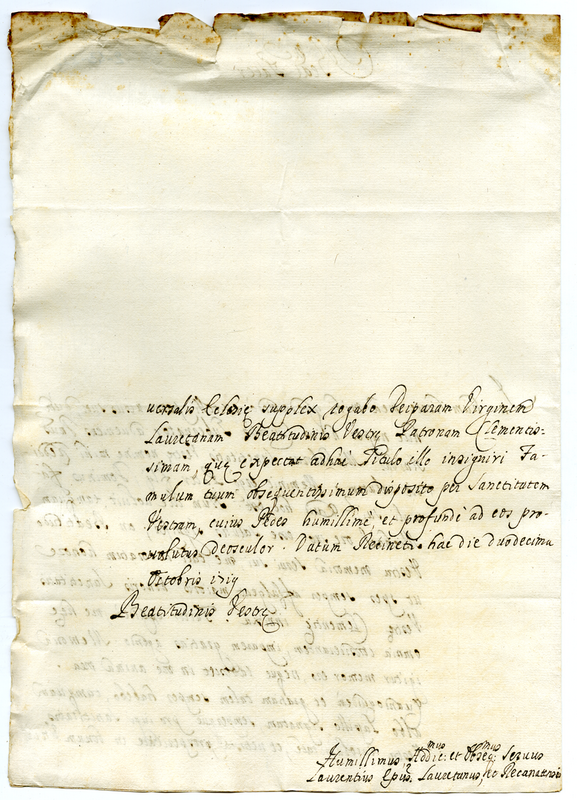 uersalis Eclesię supplex rogabo Deiparam Virginem
Lauretanam Beatitudinis Vestrę Patronam Clementis=
simam, quę expectat adhuc Titulo illo insigniri Fa=
mulum tuum obsequentissimum disposito per Sanctitatem
Vestram, cuius Pedes humillimè, et profundè ad eos pro=
uolutus deosculor. Datum Recineti hac die duodecima
Octobris 1719
Beatitudinis Vestrę
Humillimus, Addic:mus et Obseq:mus Seruus
Laurentius Epus Lauretanus, et Recanatensis